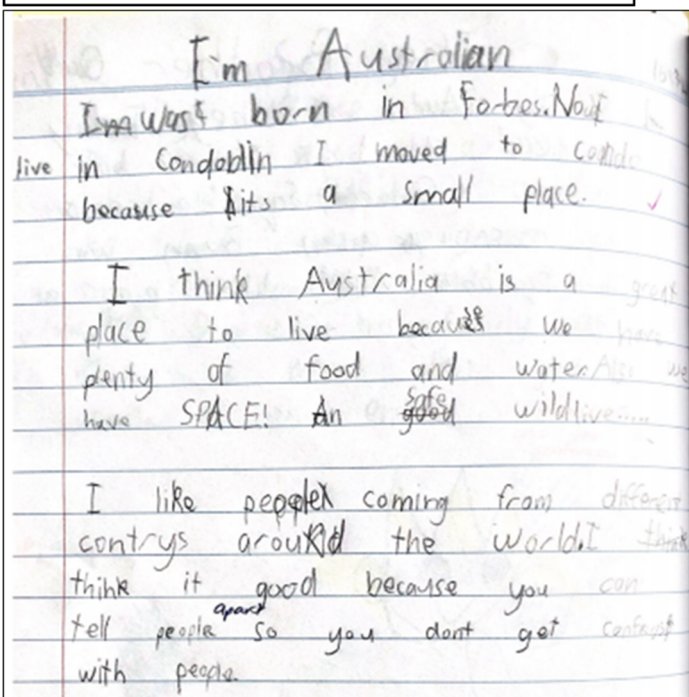 I'm Australian
I'm was born in Forbes. Now I
live in Condoblin I moved to condo
because its a small place.
I think Australia is a great
place to live because we have
plenty of food and water. Also we
have SPACE! An safe wildlive.....
I like people coming from different
contrys around the world. I think
think it good because you can
tell people apart so you dont get confused
with people.